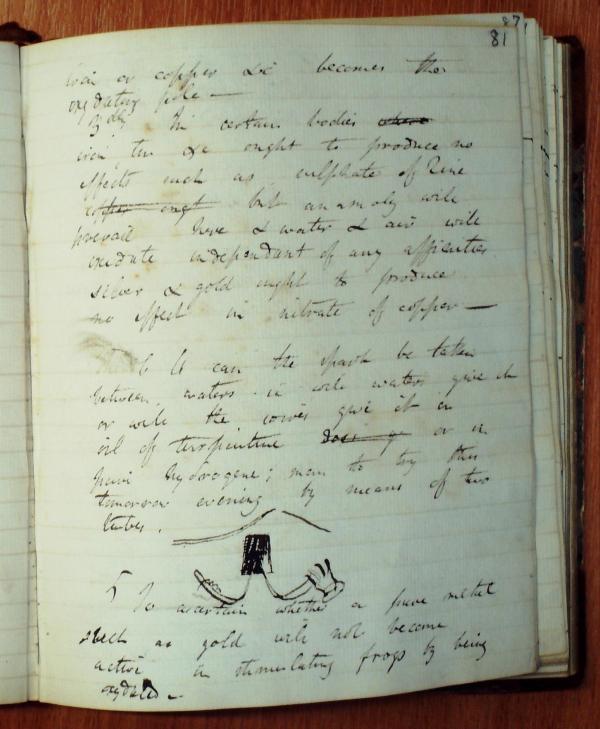 87,
81
iron or copper &c becomes the
oxydating pole —
3dly In certain bodies where
iron, tin &c ought to produce no
effects such as sulphate of Zinc
copper ougt but an anamoly will
prevail here & water & air will
oxidate independant of any affinities
silver & gold ought to produce
no effect in nitrate of copper —
can the spark be taken
between waters in will waters give it
or will the wires give it in
oil of terpintine does go or in
pure hydrogene; mem to try this
tomorrow evening by means of two
tubes.
5 To ascertain whether a pure metal
such as gold will not become
active in stimulating frogs by being
oxydated —